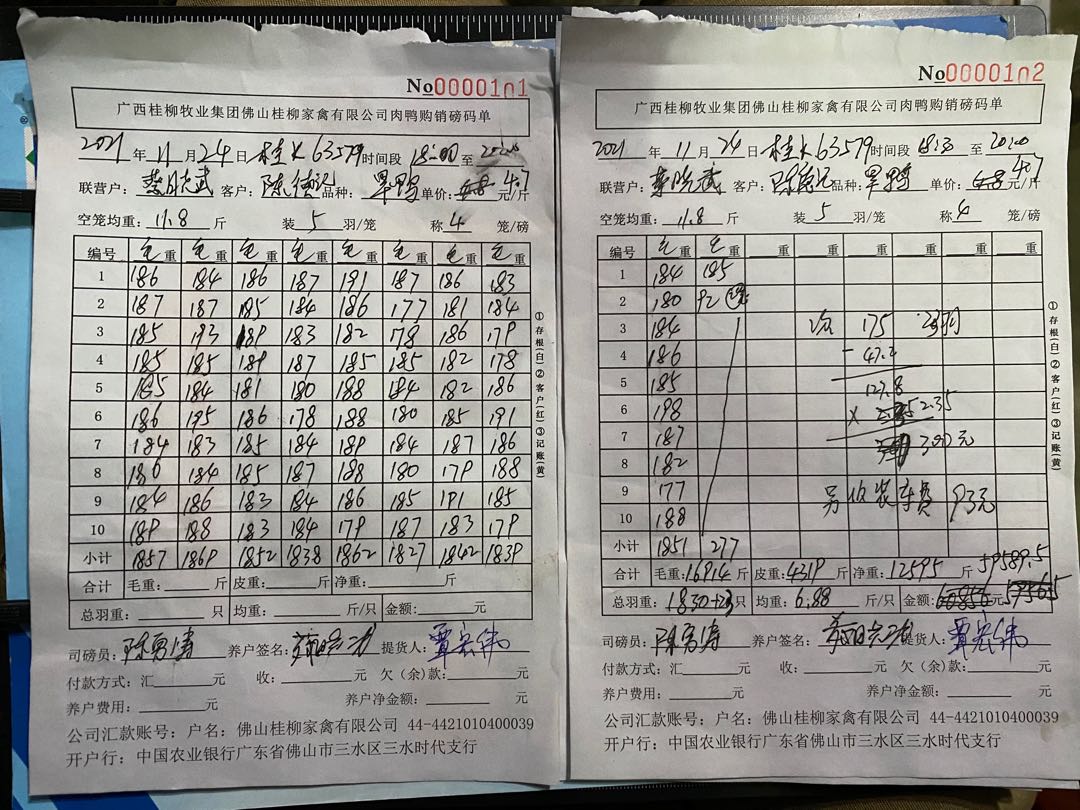 No0000101
广西桂柳牧业集团佛山桂柳家禽有限公司肉鸭购销磅码单
2021年11月24日 桂K63579 时间段 18:00 至 20:00
联营户: 客户: 陈 记 品种: 旱鸭 单价: 4.8 4.7 元/斤
空笼均重: 11.8 斤 装 5 羽/笼 称 4 笼/磅
编号 毛重 毛重 毛重 毛重 毛重 毛重 毛重 毛重
1 186 184 186 187 191 187 186 183
2 187 187 185 184 186 177 181 184
3 185 193 189 183 182 178 186 179
4 185 185 189 187 185 185 182 178
5 185 184 181 180 188 184 182 186
6 186 195 186 178 188 180 185 191
7 184 183 185 184 189 184 187 186
8 186 184 185 187 188 180 179 188
9 184 186 183 184 186 185 191 185
10 189 188 183 184 179 187 183 179
小计 1857 1869 1852 1838 1862 1827 1842 1839
合计 毛重: 斤 皮重: 斤 净重: 斤
总羽重: 只 均重: 斤/只 金额: 元
司磅员: 陈勇涛 养户签名: 提货人: 覃宏伟
付款方式: 汇 元 收: 元 欠(余)款: 元
养户费用: 元 养户净金额: 元
公司汇款账号: 户名: 佛山桂柳家禽有限公司 44-4421010400039
开户行: 中国农业银行广东省佛山市三水区三水时代支行
①存根(白)②客户(红)③记账(黄)
No0000102
广西桂柳牧业集团佛山桂柳家禽有限公司肉鸭购销磅码单
2021年11月24日 桂K63579 时间段 18:30 至 20:00
联营户: 客户: 陈 记 品种: 旱鸭 单价: 4.8 4.7 元/斤
空笼均重: 11.8 斤 装 5 羽/笼 称 4 笼/磅
编号 毛重 毛重 重 重 重 重 重 重
1 184 185
2 180 92
3 184 175 23羽
4 186 -47.2
5 185 127.8
6 198 × 2.35
7 187 300元
8 182
9 177 另收装车费 93元
10 188
小计 1851 277
合计 毛重: 16914 斤 皮重: 4319 斤 净重: 12595 斤 59589.5
总羽重: 1830+23 只 均重: 6.88 斤/只 金额: 60856 元 57565
司磅员: 陈勇涛 养户签名: 提货人: 覃宏伟
付款方式: 汇 元 收: 元 欠(余)款: 元
养户费用: 元 养户净金额: 元
公司汇款账号: 户名: 佛山桂柳家禽有限公司 44-4421010400039
开户行: 中国农业银行广东省佛山市三水区三水时代支行
①存根(白)②客户(红)③记账(黄)